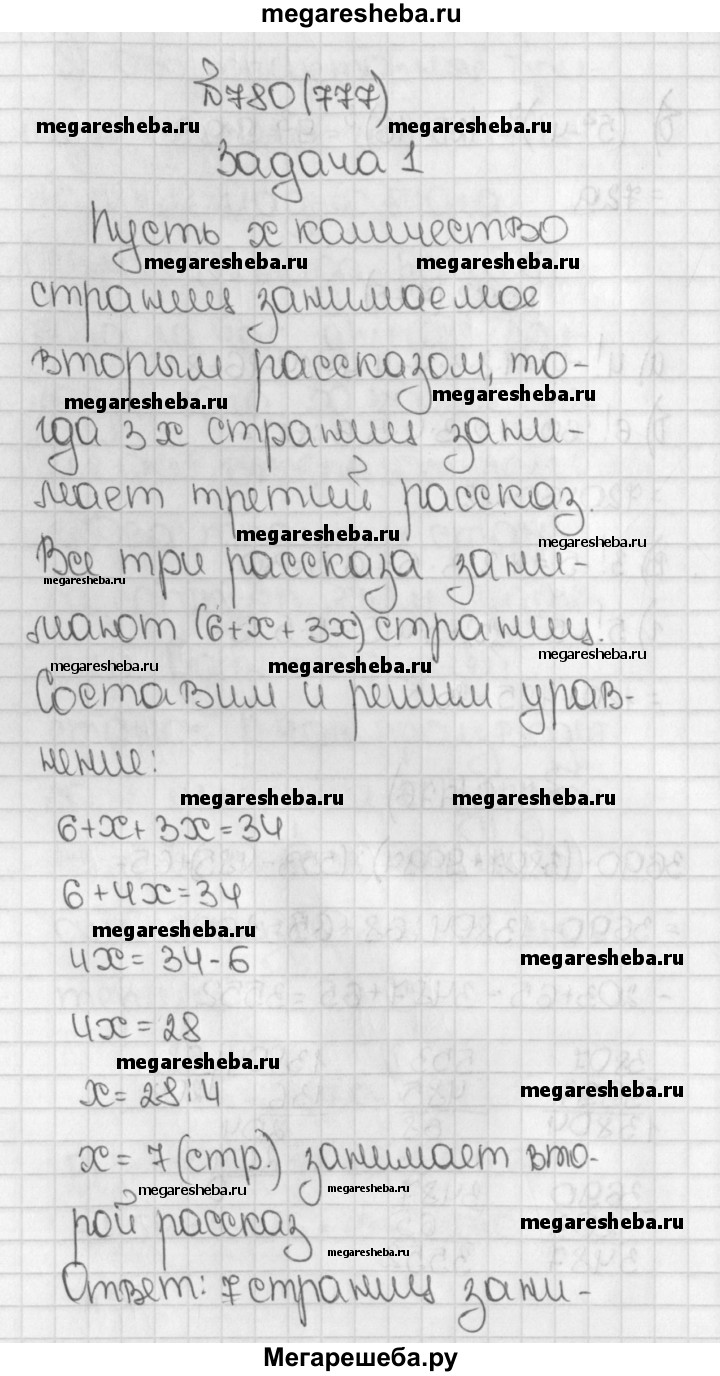 megaresheba.ru
№780(777)
megaresheba.ru megaresheba.ru
Задача 1
Пусть x количество
megaresheba.ru megaresheba.ru
страниц занимаемое
вторым рассказом, то-
megaresheba.ru megaresheba.ru
гда 3x страниц зани-
мает третий рассказ.
megaresheba.ru megaresheba.ru
Все три рассказа зани-
megaresheba.ru
мают (6+x+3x) страниц.
megaresheba.ru megaresheba.ru megaresheba.ru
Составим и решим урав-
нение:
megaresheba.ru megaresheba.ru
6+x+3x=34
6+4x=34
megaresheba.ru
4x=34-6 megaresheba.ru
4x=28
megaresheba.ru
x=28:4 megaresheba.ru
x=7(стр.) занимает вто-
megaresheba.ru megaresheba.ru
рой рассказ megaresheba.ru
megaresheba.ru
Ответ: 7 страниц зани-
Мегарешеба.ру